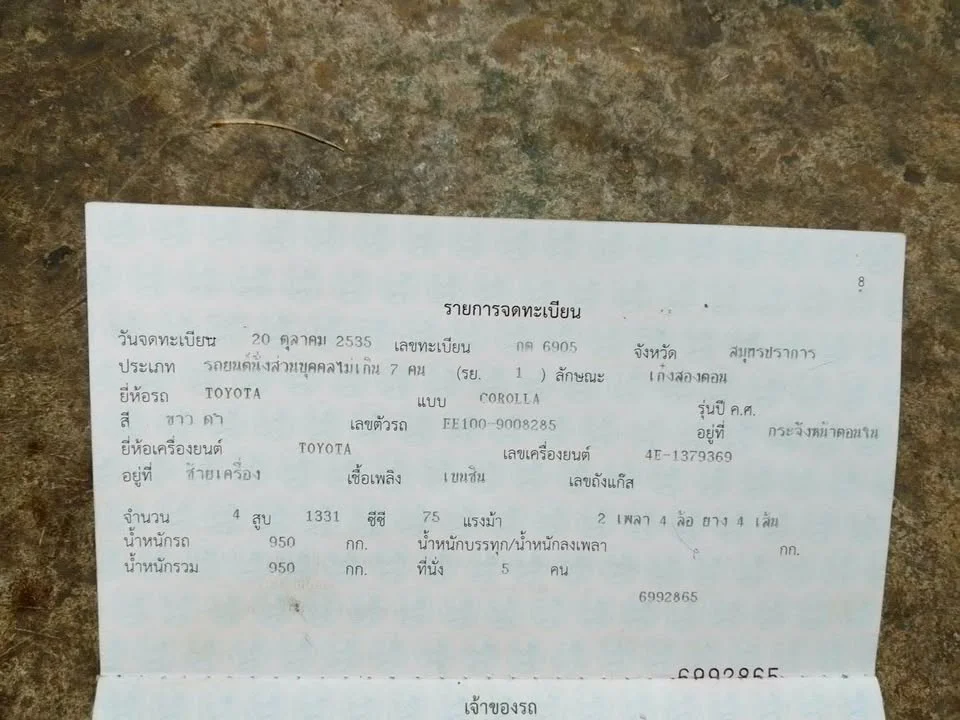 8
รายการจดทะเบียน
วันจดทะเบียน 20 ตุลาคม 2535 เลขทะเบียน กต 6905 จังหวัด สมุทรปราการ
ประเภท รถยนต์นั่งส่วนบุคคลไม่เกิน 7 คน (รย. 1 ) ลักษณะ เก๋งสองตอน
ยี่ห้อรถ TOYOTA แบบ COROLLA รุ่นปี ค.ศ.
สี ขาว ดำ เลขตัวรถ EE100-9008285 อยู่ที่ กระจังหน้าตอนใน
ยี่ห้อเครื่องยนต์ TOYOTA เลขเครื่องยนต์ 4E-1379369
อยู่ที่ ซ้ายเครื่อง เชื้อเพลิง เบนซิน เลขถังแก๊ส
จำนวน 4 สูบ 1331 ซีซี 75 แรงม้า 2 เพลา 4 ล้อ ยาง 4 เส้น
น้ำหนักรถ 950 กก. น้ำหนักบรรทุก/น้ำหนักลงเพลา กก.
น้ำหนักรวม 950 กก. ที่นั่ง 5 คน
6992865
6992865
เจ้าของรถ